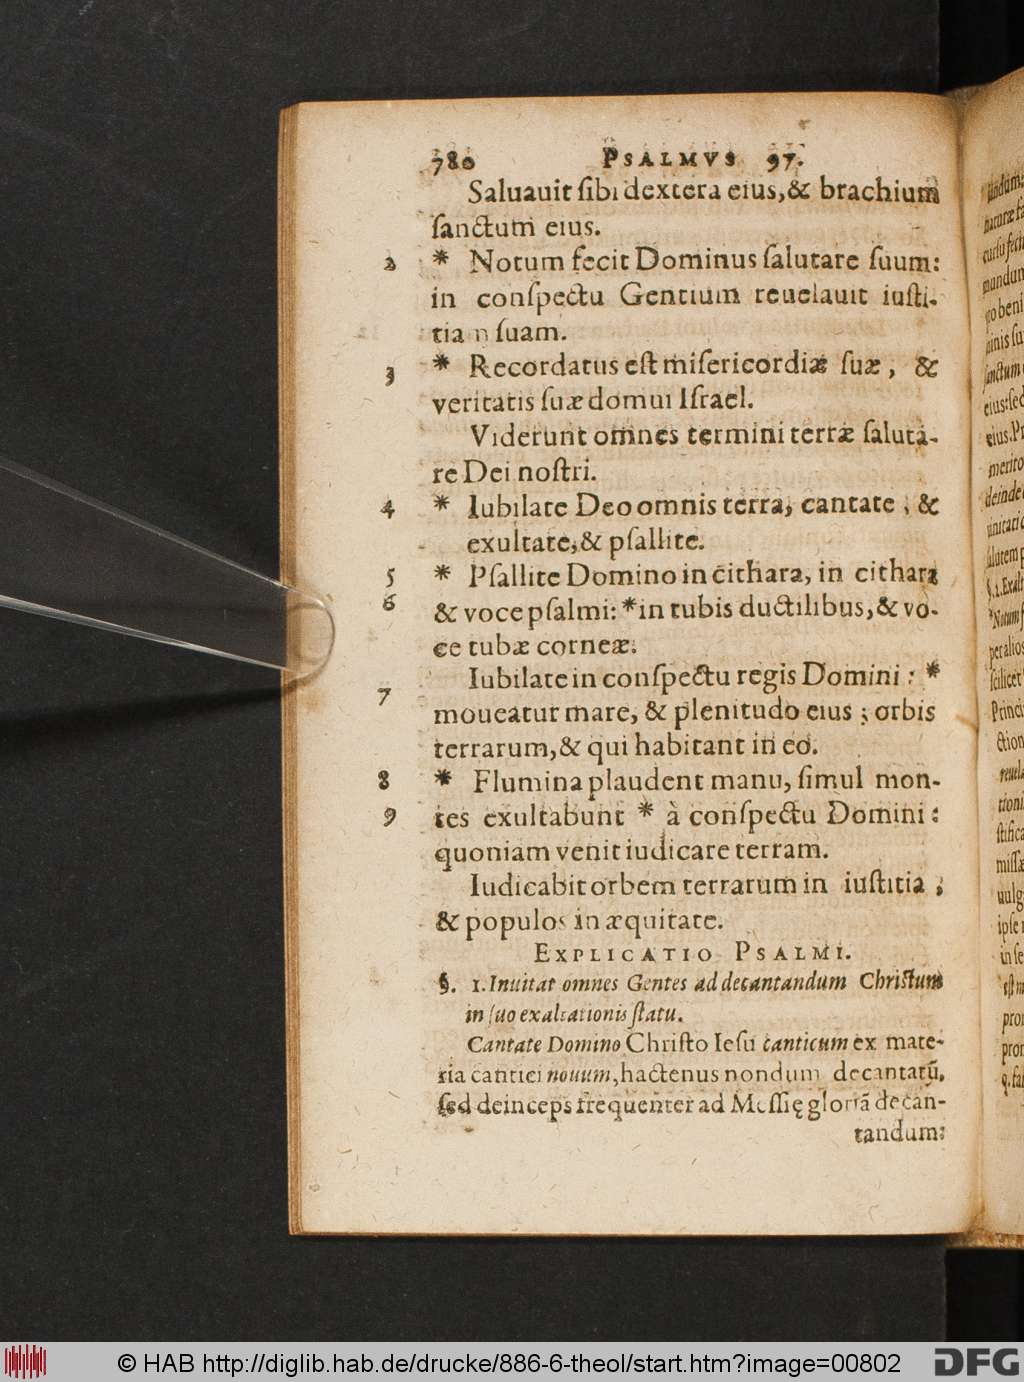 780 PSALMVS 97.
Saluauit ſibi dextera eius, & brachium
ſanctum eius.
2 * Notum fecit Dominus ſalutare ſuum:
in conſpectu Gentium reuelauit iuſti-
tiam ſuam.
3 * Recordatus eſt miſericordiæ ſuæ, &
veritatis ſuæ domui Iſrael.
Viderunt omnes termini terræ ſaluta-
re Dei noſtri.
4 * Iubilate Deo omnis terra, cantate, &
exultate, & pſallite.
5 * Pſallite Domino in cithara, in cithara
6 & voce pſalmi: * in tubis ductilibus, & vo-
ce tubæ corneæ.
Iubilate in conſpectu regis Domini: *
7 moueatur mare, & plenitudo eius; orbis
terrarum, & qui habitant in eo.
8 * Flumina plaudent manu, ſimul mon-
9 tes exultabunt * à conſpectu Domini:
quoniam venit iudicare terram.
Iudicabit orbem terrarum in iuſtitia;
& populos in æquitate.
EXPLICATIO PSALMI.
§. 1. Inuitat omnes Gentes ad decantandum Chriſtum
in ſuo exaltationis ſtatu.
Cantate Domino Chriſto Ieſu canticum ex mate-
ria cantici nouum, hactenus nondum decantatũ,
ſed deinceps frequenter ad Meſſię gloriã decan-
tandum:
© HAB http://diglib.hab.de/drucke/886-6-theol/start.htm?image=00802
DFG